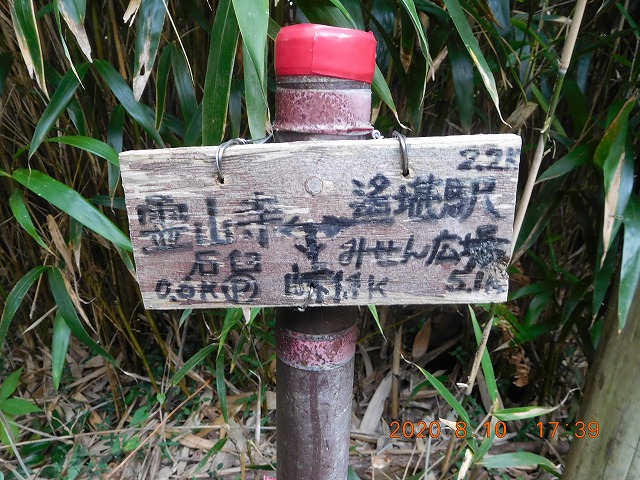 2.2k
霊山寺 遙堪駅
石臼 みせん広場
0.9K(P) 峠1.1K 5.1k
2020 8 10 17:39